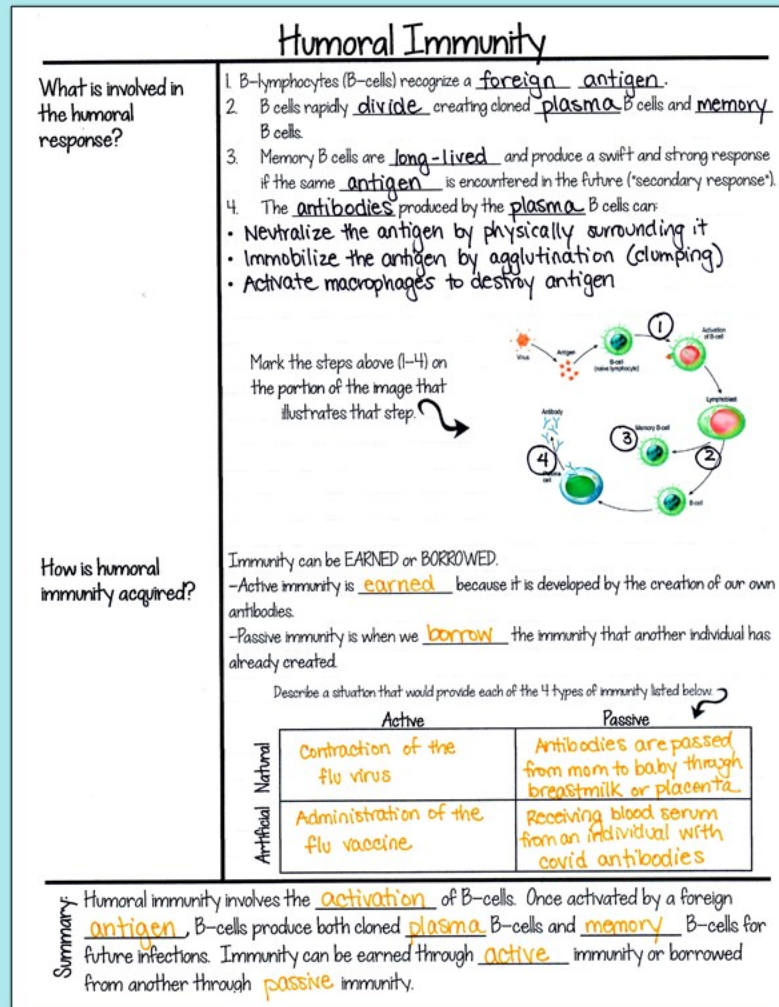 Humoral Immunity
What is involved in
the humoral
response?
1. B-lymphocytes (B-cells) recognize a foreign antigen.
2. B cells rapidly divide creating cloned plasma B cells and memory
B cells.
3. Memory B cells are long-lived and produce a swift and strong response
if the same antigen is encountered in the future ("secondary response").
4. The antibodies produced by the plasma B cells can:
• Neutralize the antigen by physically surrounding it
• Immobilize the antigen by agglutination (clumping)
• Activate macrophages to destroy antigen
Mark the steps above (1-4) on
the portion of the image that
illustrates that step.
Virus
Antigen
B-cell
(naive lymphocyte)
1
Activation
of B-cell
Lymphoblast
2
Memory B-cell
3
B-cell
4
cell
Antibody
How is humoral
immunity acquired?
Immunity can be EARNED or BORROWED.
-Active immunity is earned because it is developed by the creation of our own
antibodies.
-Passive immunity is when we borrow the immunity that another individual has
already created.
Describe a situation that would provide each of the 4 types of immunity listed below.
Active
Passive
Natural
Contraction of the
flu virus
Antibodies are passed
from mom to baby through
breastmilk or placenta
Artificial
Administration of the
flu vaccine
Receiving blood serum
from an individual with
covid antibodies
Summary:
Humoral immunity involves the activation of B-cells. Once activated by a foreign
antigen, B-cells produce both cloned plasma B-cells and memory B-cells for
future infections. Immunity can be earned through active immunity or borrowed
from another through passive immunity.